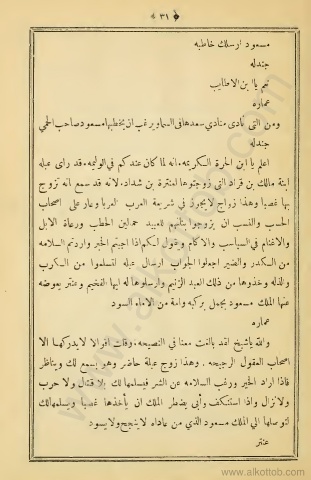 ﴿ ٣١ ﴾
مسعود ارسلك خاطبه
جندله
نعم يا ابن الاطايب
عماره
ومن التي نادى منادي سعدها في السما ويرغب ان يخطبها مسعود صاحب الحمي
جندله
اعلم يا ابن الحرة الكريمه، انه لما كان عندكم في الوليمه، قد راى عبله
ابنة مالك بن قراد التي زوجتوها لعنترة بن شداد، لانه قد سمع انه تزوج
بها غصباً وهذا زواج لايجوز في شريعة العرب العربا وعار على اصحاب
الحسب والنسب ان يزوجوا بناتهم للعبيد حمالين الحطب ورعاة الابل
والاغنام في السباسب والاكام ويقول لكم اذا اجبتم الخير واردتم السلامه
من الكدر والضير اجعلوا الجواب ارسال عبله لتسلموا من الكرب
والذله وخذوها من ذلك العبد الزنيم وارسلوها له ايها الفخيم وعنتر يعوضه
عنها الملك مسعود بجمل يركبه وامة من الاماء السود
عماره
والله ياشيخ لقد بالغت معنا في النصيحه، وقلت اقوالا لايدركها الا
اصحاب العقول الرجيحه، وهذا زوج عبلة حاضر وهو يسمع لك ويناظر
فاذا اراد الخير ورغب السلامه عن الشر فيسلمها لك بلا قتال ولا حرب
ولانزال واذا استنكف وأبى يضطر الملك ان يأخذها غصباً ويسلمها لك
لتوصلها الى الملك مسعود الذي من عاداه لاينجح ولايسود
عنتر
www.alkottob.com
www.alkottob.com